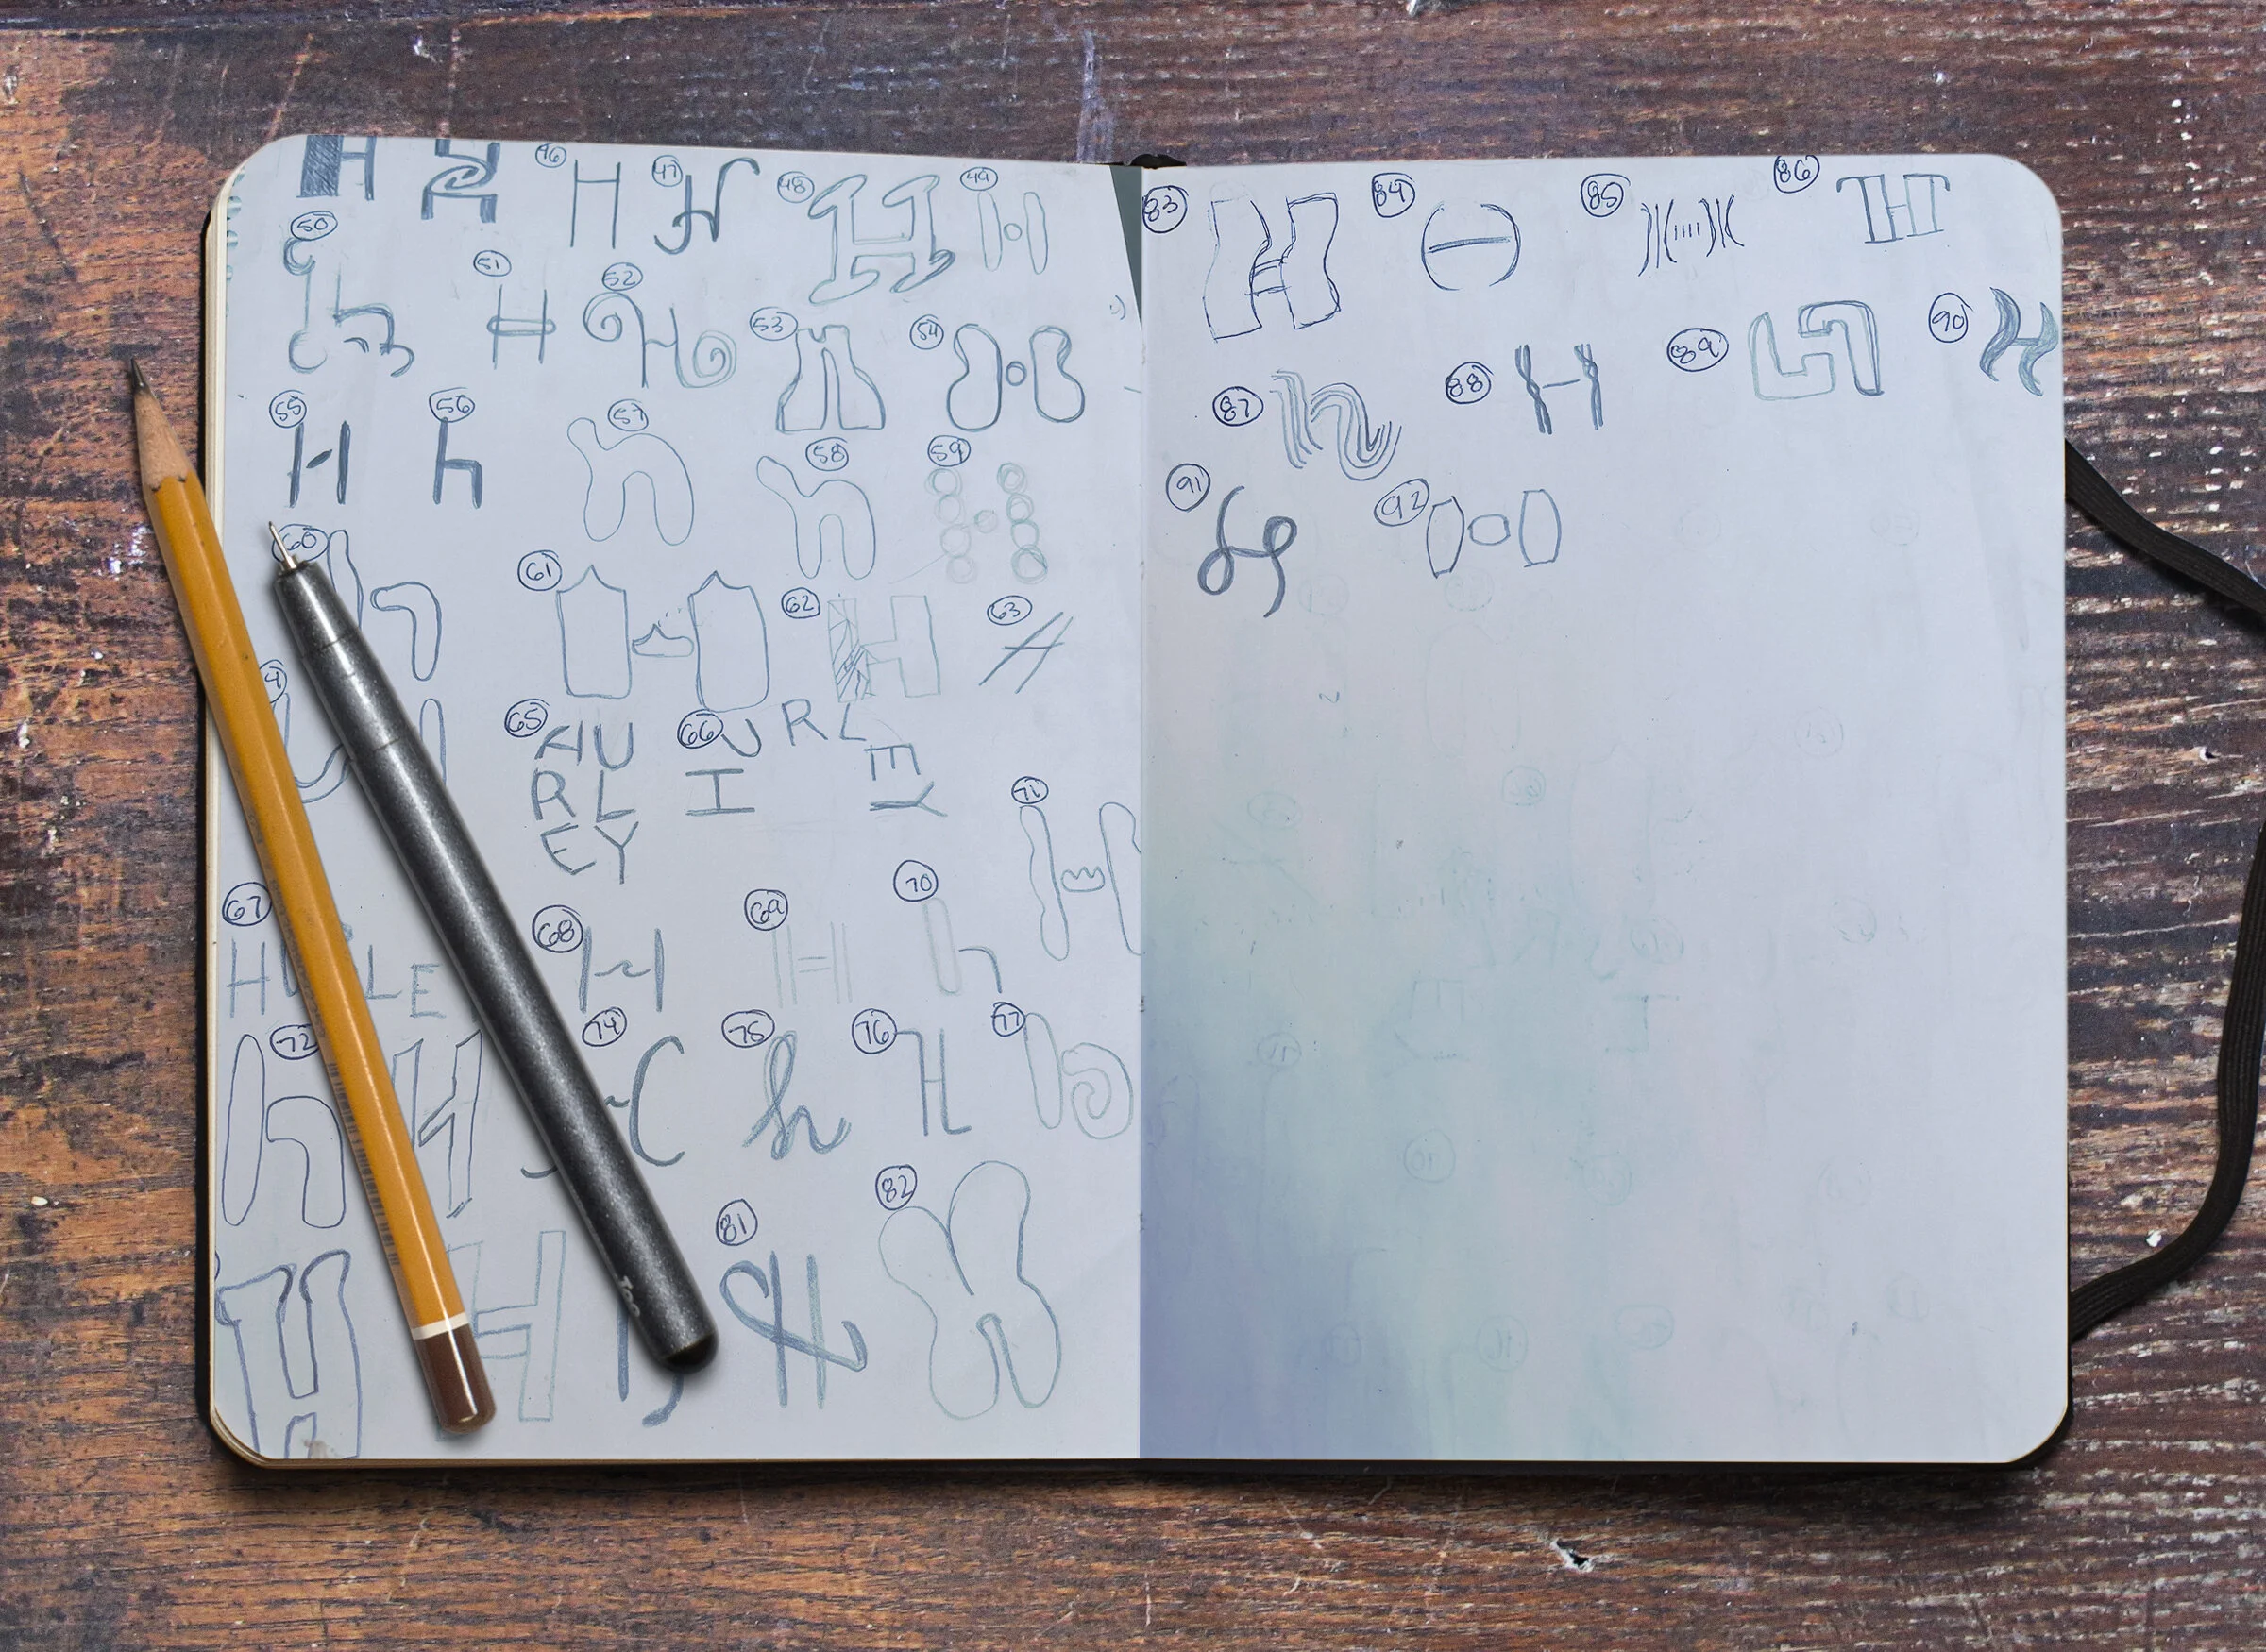 H 46 H 47 H 48 H 49 H
50 h 51 H 52 H 53 H 54 H
55 H 56 h 57 h 58 h 59 H
60 h 61 H 62 H 63 H
65 HU
RL
EY
66 HURLEY
67 H LE
68 H 69 H 70 h 71 H
72 h H 74 75 h 76 H 77 h
H H 81 H 82 H
83 H 84 H 85 H 86 H
87 h 88 H 89 H 90 H
91 H 92 H